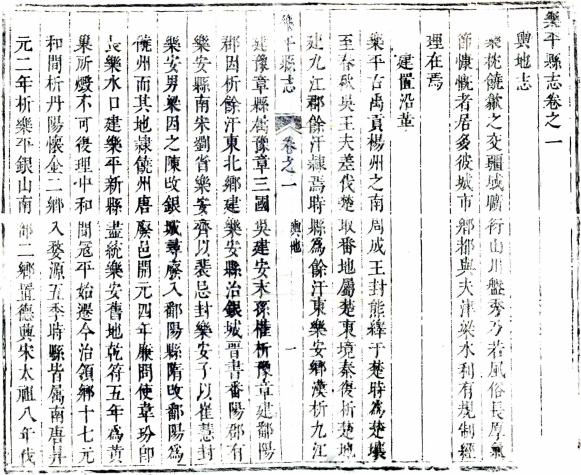 樂平縣志卷之一
輿地志
樂挑饒歙之交疆域曠衍山川盤秀乃若風俗長厚氣
節慷慨者居多彼城市鄉都與夫津梁水利有規制經
理在焉
建置沿革
樂平古禹貢楊州之南周成王封熊繹于楚時為楚壤
至春秋吳王夫差伐楚取番地屬楚東境秦復析楚地
建九江郡餘汗隷焉時縣為餘汗東樂安鄉漢析九江
樂平縣志 卷之一 輿地 一
建豫章縣屬豫章三國吳建安末孫權析豫章建鄱陽
郡因析餘汗東北鄉建樂安縣治銀城晋書番陽郡有
樂安縣南宋劉省樂安齊以裴忌封樂安子以崔慧封
樂安男梁因之陳改銀城尋廢入鄱陽縣隋改鄱陽為
饒州而其地隷饒州唐廢邑開元四年廉問使韋玢即
長樂水口建樂平新縣盡統樂安舊地乾符五年為黃
巢所燬不可復理中和間冠平始遷今治領鄉十七元
和間析丹陽懷金二鄉入婺源五季時縣皆屬南唐昇
元二年析樂平銀山南部二鄉置德興宋太祖八年伐